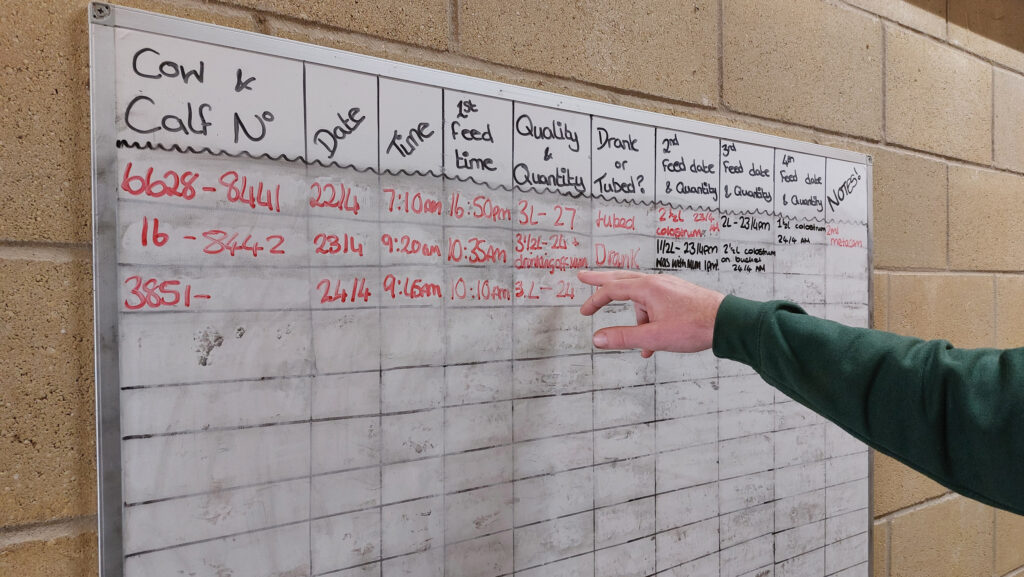 Cow & Calf Nº
Date
Time
1st Feed time
Quality & Quantity
Drank or Tubed?
2nd Feed date & Quantity
3rd Feed date & Quantity
4th Feed date & Quantity
NOTES!
6628-8441 22/4 7:10am 16:50pm 3L-27 tubed 2½L 23/4 colostrum 2L-23/4pm 1½L colostrum 24/4 AM 2ml metacam
16-8442 23/4 9:20am 10:35AM 3½L-26 drinking off mum Drank 1½L-23/4pm was with Mum 1pm. 2½L colostrum on bucket 24/4 AM
3851- 24/4 9:45am 10:10Am 3.L-24